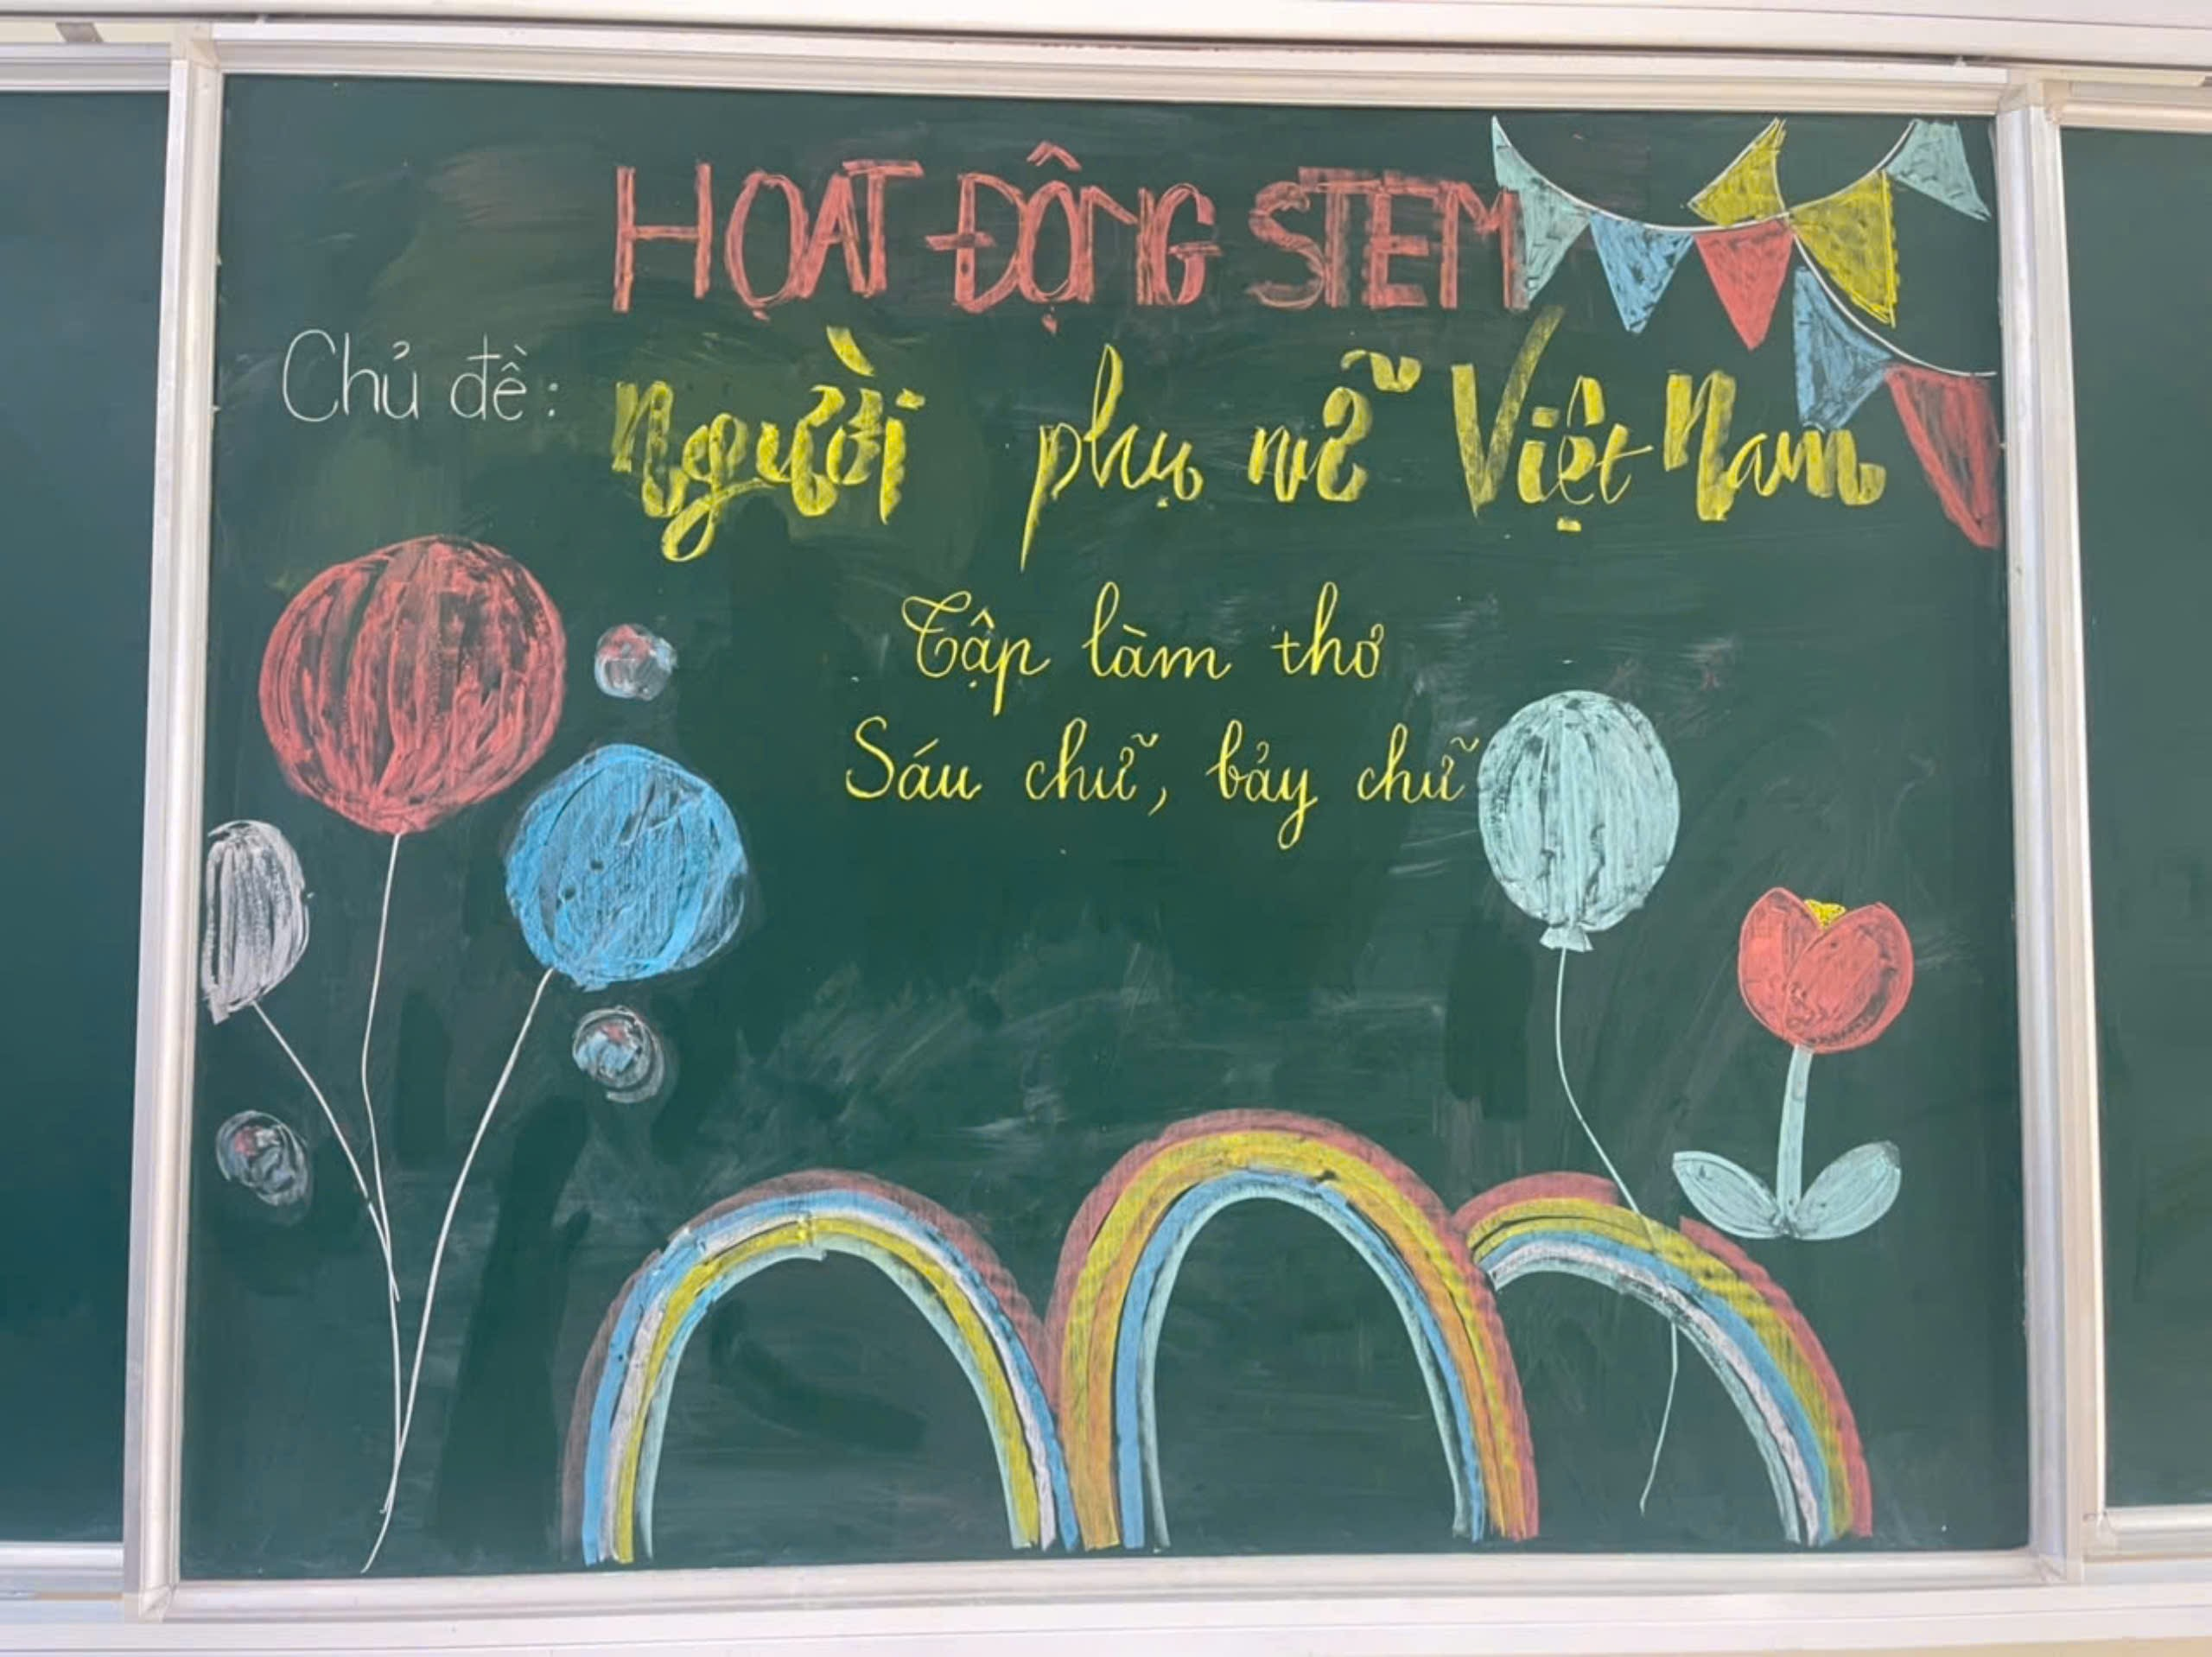 HOẠT ĐỘNG STEM
Chủ đề: Người phụ nữ Việt Nam
Tập làm thơ
Sáu chữ, bảy chữ